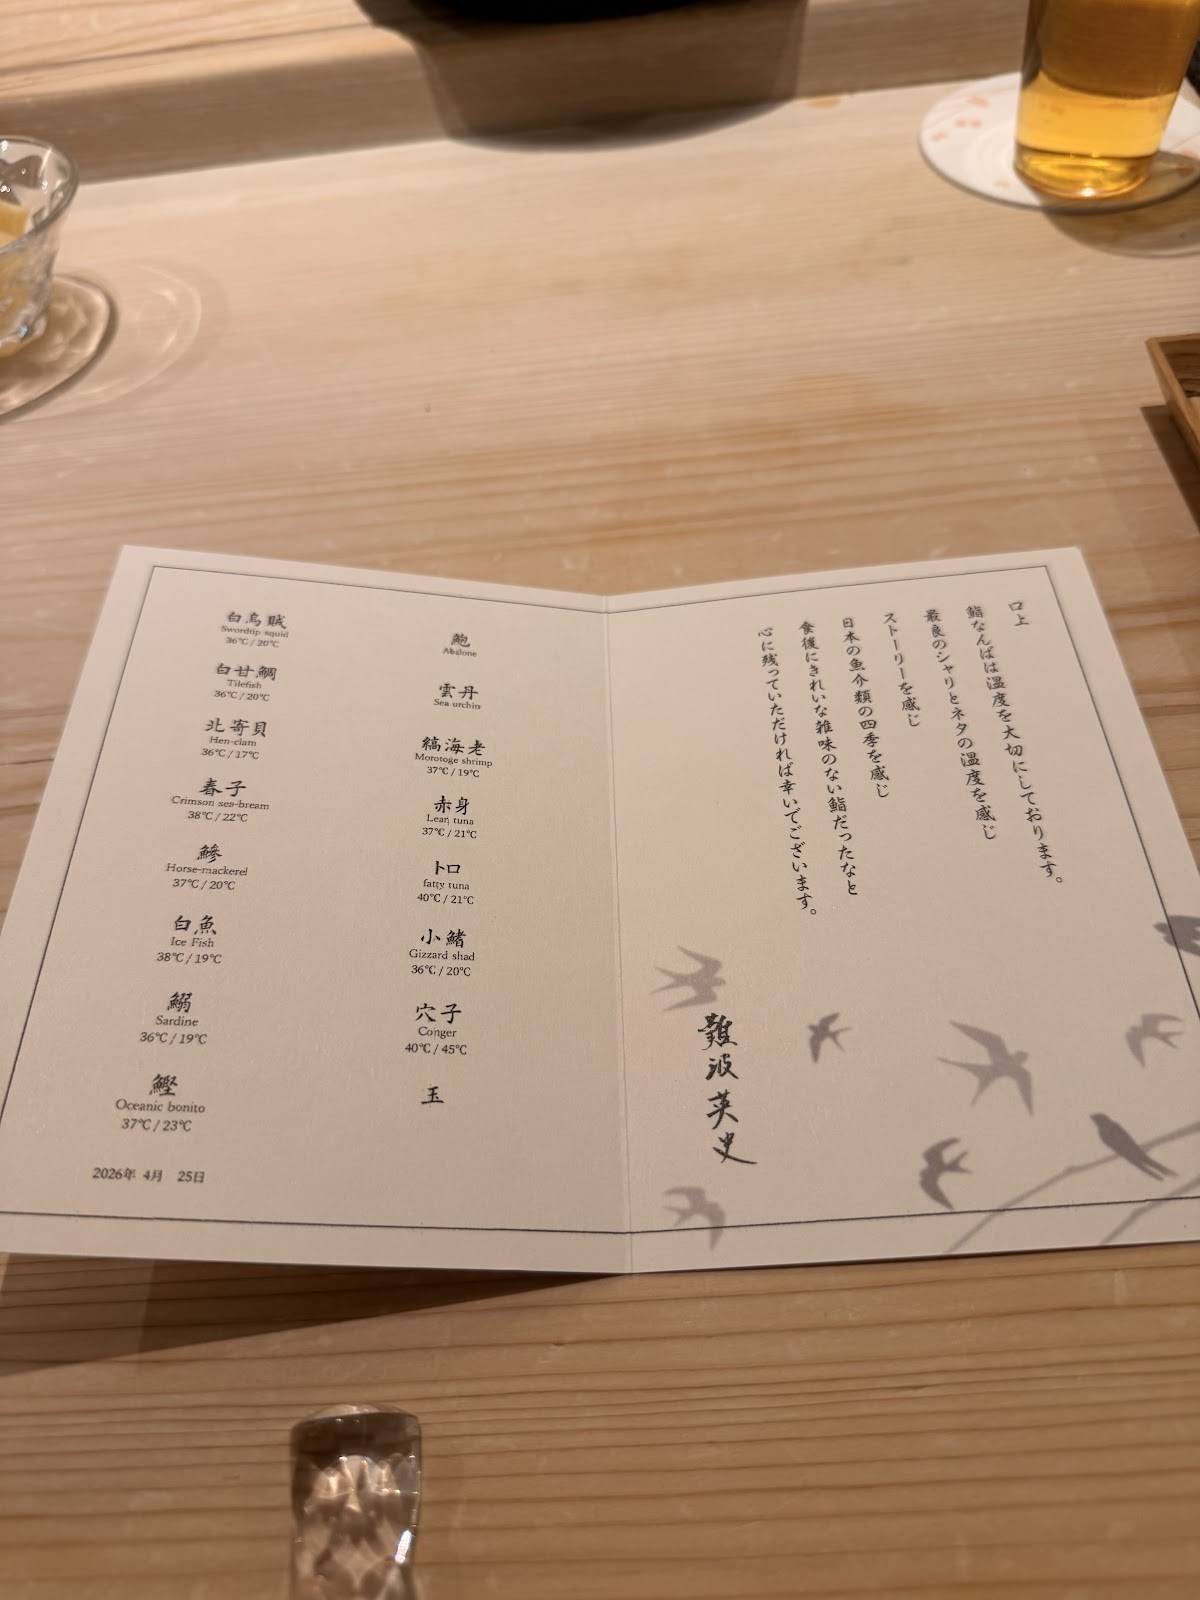 口上
鮨なんばは温度を大切にしております。
最良のシャリとネタの温度を感じ
ストーリーを感じ
日本の魚介類の四季を感じ
食後にきれいな雑味のない鮨だったなと
心に残っていただければ幸いでございます。
難波英史
鮑
Abalone
雲丹
Sea urchin
縞海老
Morotoge shrimp
37℃ / 19℃
赤身
Lean tuna
37℃ / 21℃
トロ
fatty tuna
40℃ / 21℃
小鰭
Gizzard shad
36℃ / 20℃
穴子
Conger
40℃ / 45℃
玉
白烏賊
Swordtip squid
36℃ / 20℃
白甘鯛
Tilefish
36℃ / 20℃
北寄貝
Hen-clam
36℃ / 17℃
春子
Crimson sea-bream
38℃ / 22℃
鰺
Horse-mackerel
37℃ / 20℃
白魚
Ice Fish
38℃ / 19℃
鰯
Sardine
36℃ / 19℃
鰹
Oceanic bonito
37℃ / 23℃
2026年 4月 25日